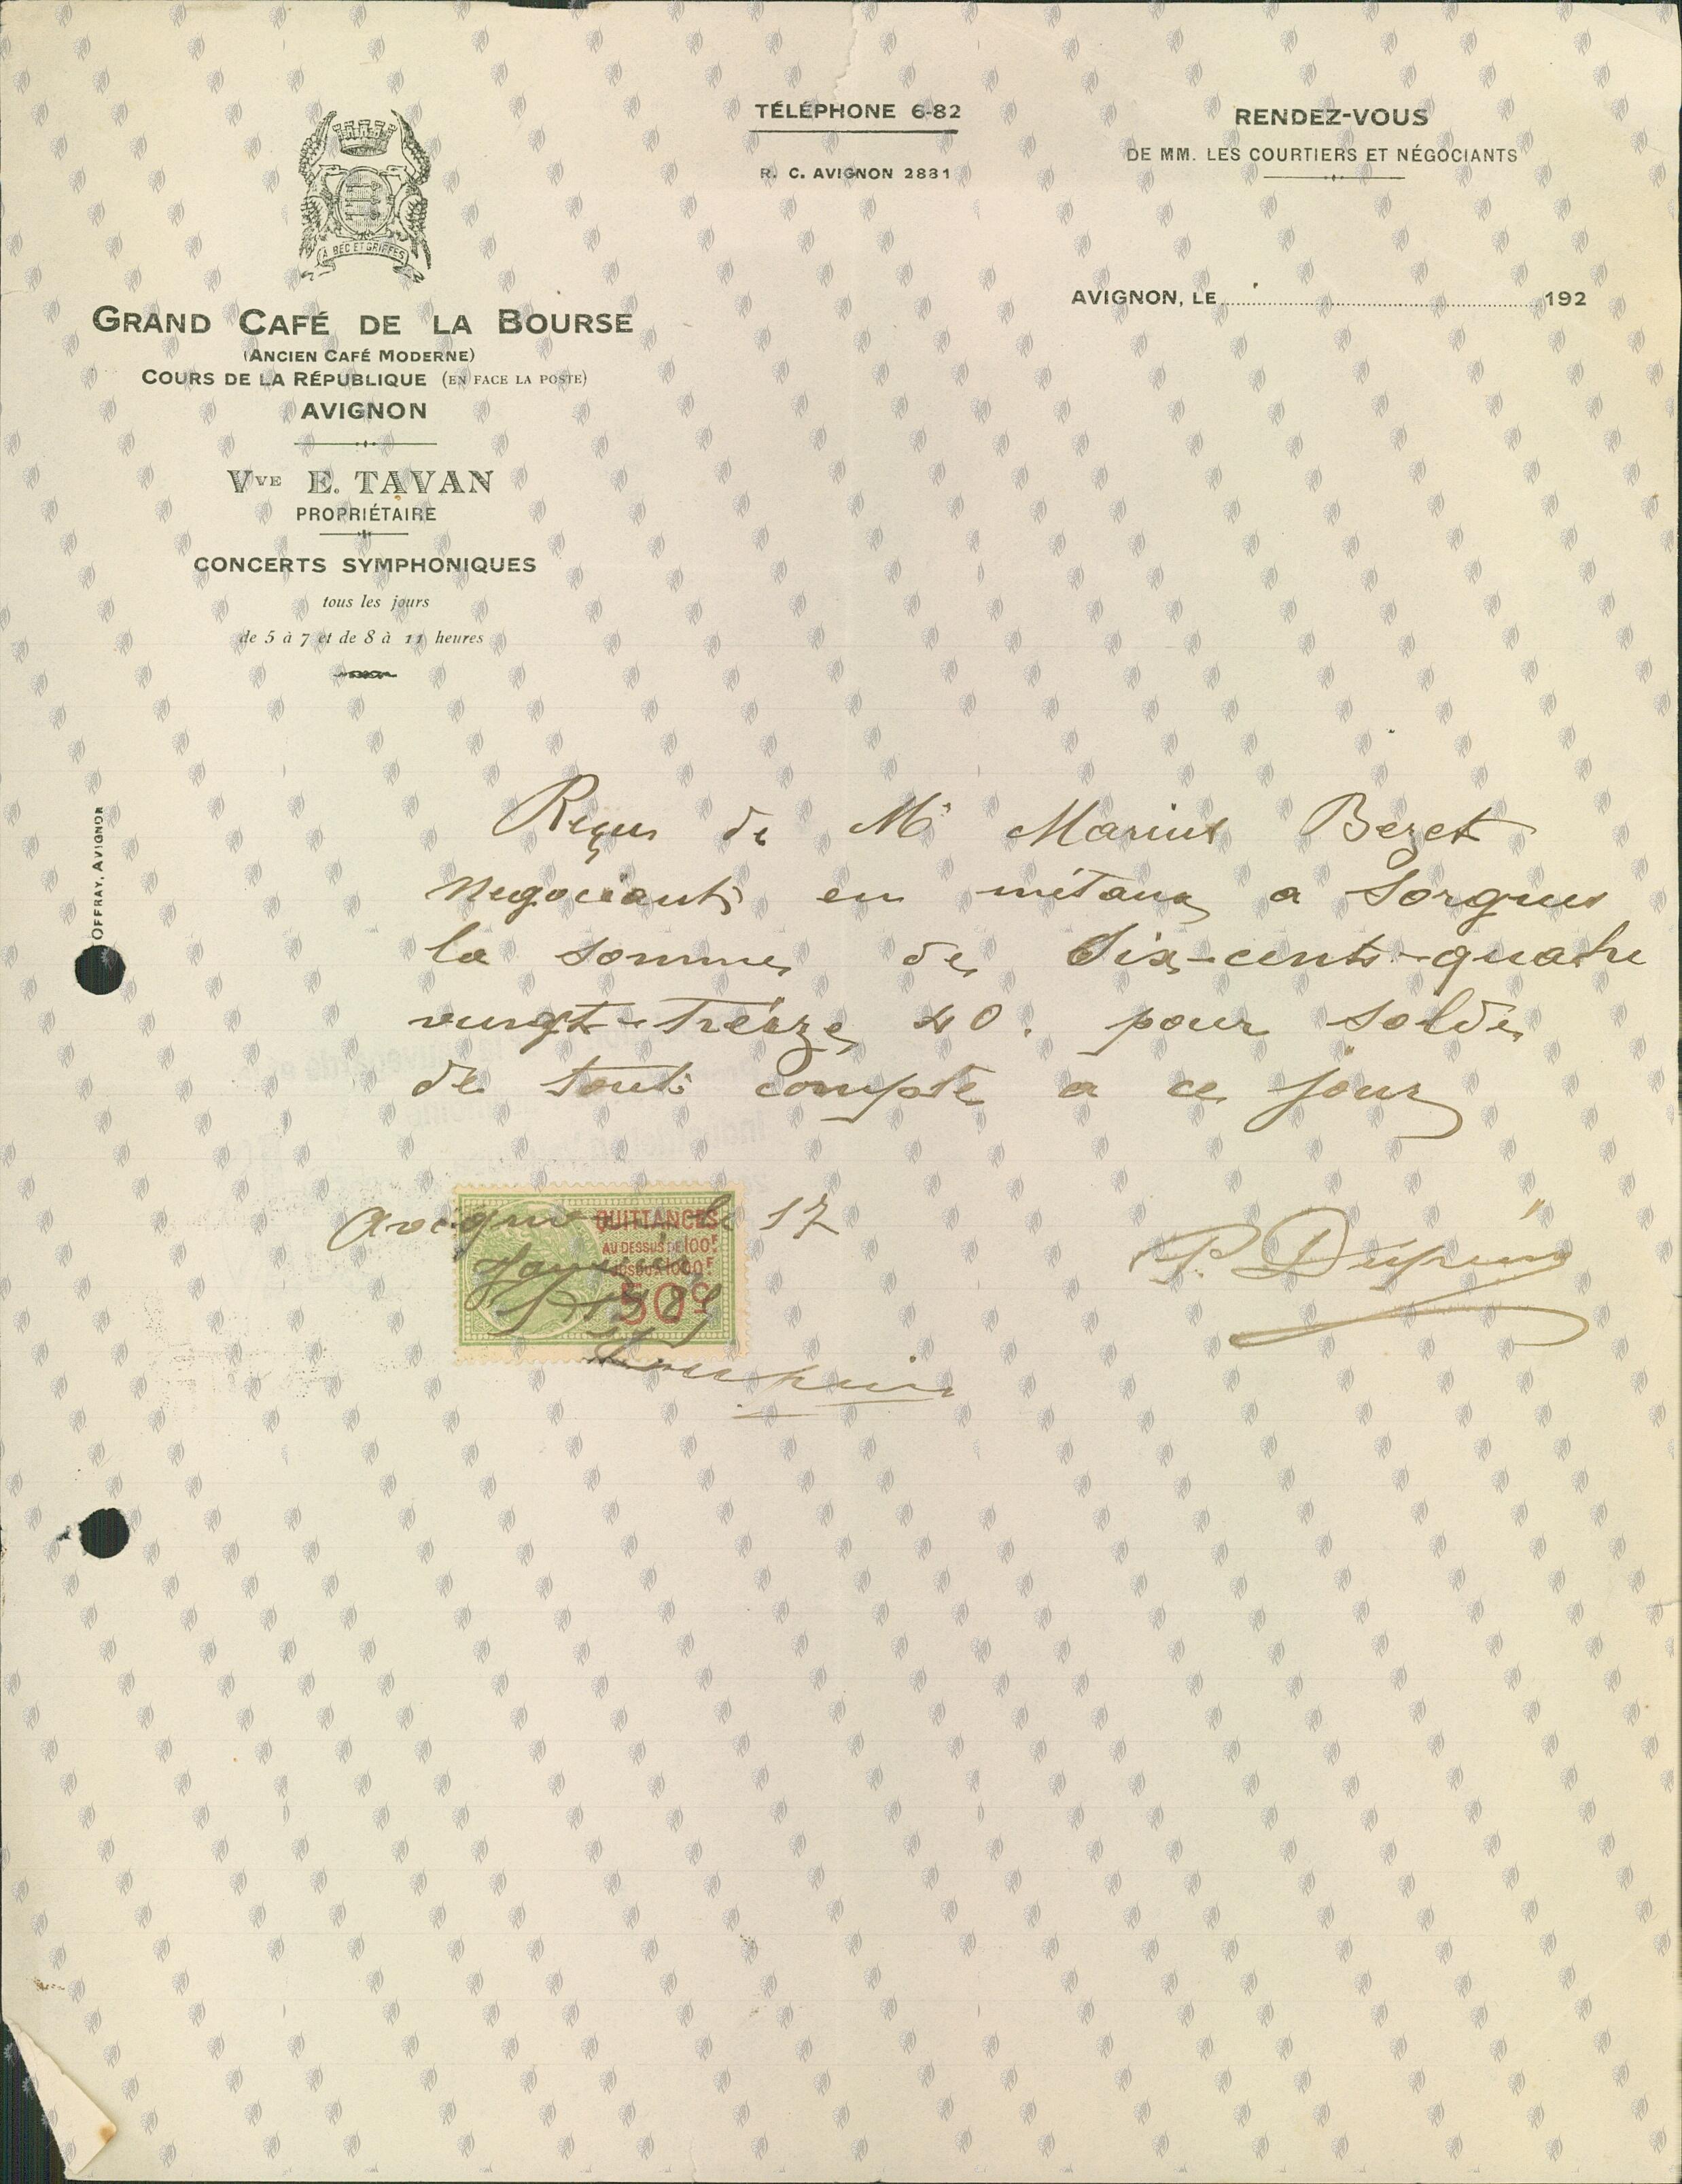 À BEC ET GRIFFES
GRAND CAFÉ DE LA BOURSE
(ANCIEN CAFÉ MODERNE)
COURS DE LA RÉPUBLIQUE (EN FACE LA POSTE)
AVIGNON
Vve E. TAVAN
PROPRIÉTAIRE
CONCERTS SYMPHONIQUES
tous les jours
de 5 à 7 et de 8 à 11 heures
TÉLÉPHONE 6-82
R. C. AVIGNON 2881
RENDEZ-VOUS
DE MM. LES COURTIERS ET NÉGOCIANTS
AVIGNON, LE 192
OFFRAY, AVIGNON
Reçu de Mr Marius Bezet
Negociant en métaux a Sorgues
la somme de Six-cents-quatre
vingt-treize 40. pour solde
de tout compte a ce jour
Avignon le 17
QUITTANCES
AU DESSUS DE 100F
JUSQU'A 1000F
50c
P. Dupuis